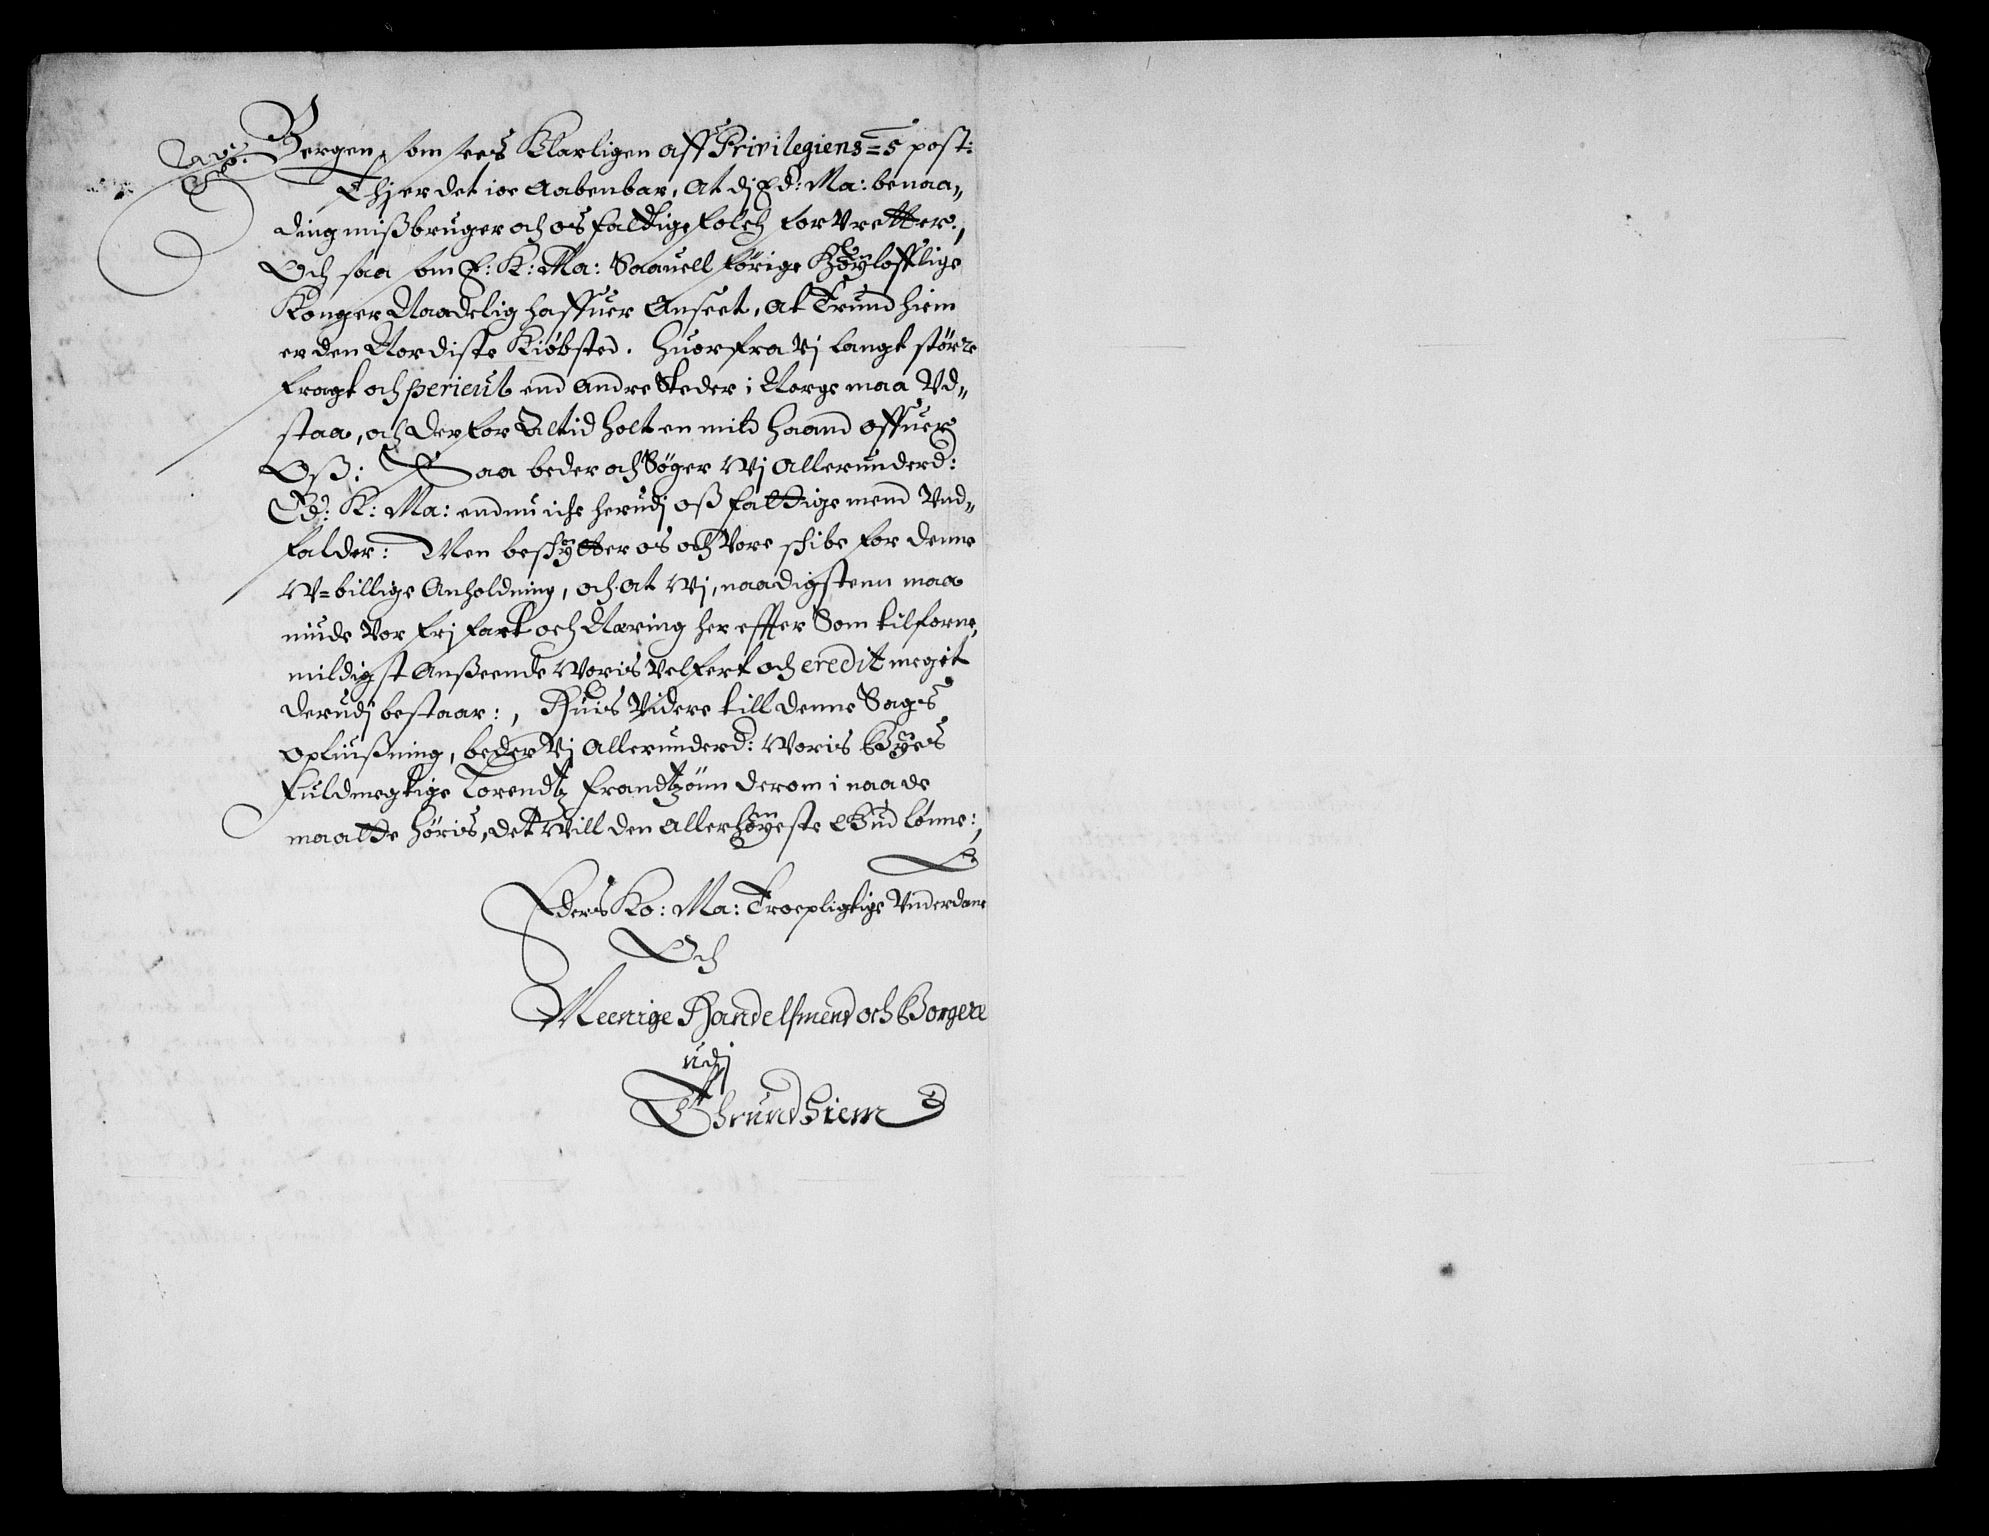 Bergen, som sees Klarligen aff Privilegiens = 5 post:
Thj er det ioe Aabenbar, At dj Ed: Ma: benaa„
ding mißbruger och os fattige folch forVretter,
Och saa som E: K: Ma: Saauell förige Höÿlofflige
Konger Naadelig haffuer Anseet, At Trundhiem
er den Nordiste Kiöbsted. Huorfra Vj langt större
fragt och pericul end andre Steder i Norge maa Vd„
staa, och derfor Altid holt en mild haand offuer
Oß: Saa beder och Söger Wj Allerunderd:
Ed: K: Ma: endnu iche herudj oß fattige mend Vnd„
falder: Men beschÿtter os och Vore schibe for denne
W=billige Anholdning, och at Wj, naadigstenn maa
niude Vor frj fart och Næring her effter Som tilforne,
mildigst Anßeende Woris Velfert och credit megit
derudj bestaar:, Huis Videre till denne Sags
opliußning, beder Vj Allerunderd: Woris Bÿes
fuldmegtige Lorendtz frandtzöun derom i naade
maatte höris, det Will den Allerhöÿeste Gud lönne:,
Eders Ko: Ma: Troepligtige Vnderdane
Och
Meenige Handelsmend och Borgere
udj
Thrundhiem